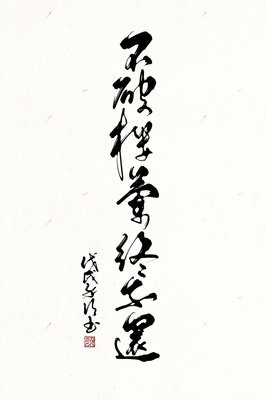 不破樓蘭終不還
戊戌书